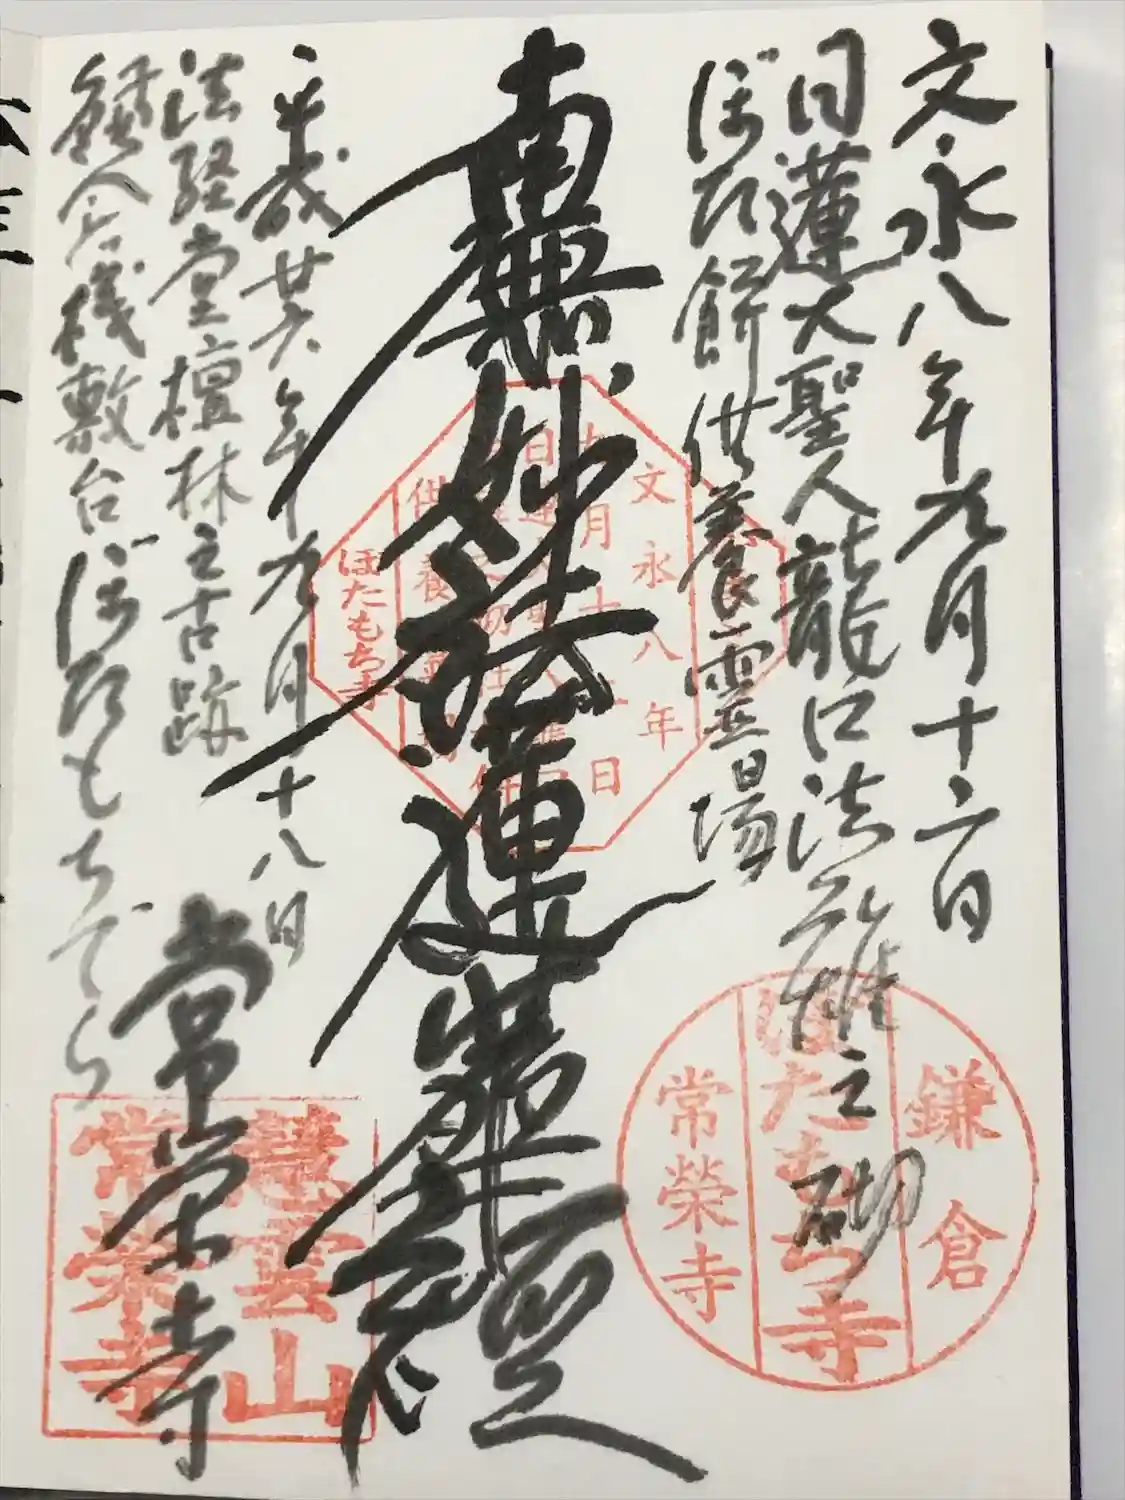 文永八年九月十二日
日蓮大聖人龍口法難之砌
ぼた餅供養霊場
南無妙法蓮華経
平成廿六年九月十八日
法経堂檀林之古跡
鎌倉六棧敷台ぼたもちでら
常栄寺
文永八年
九月十二日
供養
ほたもち寺
鎌倉
ぼたもち寺
常榮寺
慧雲山
常榮寺